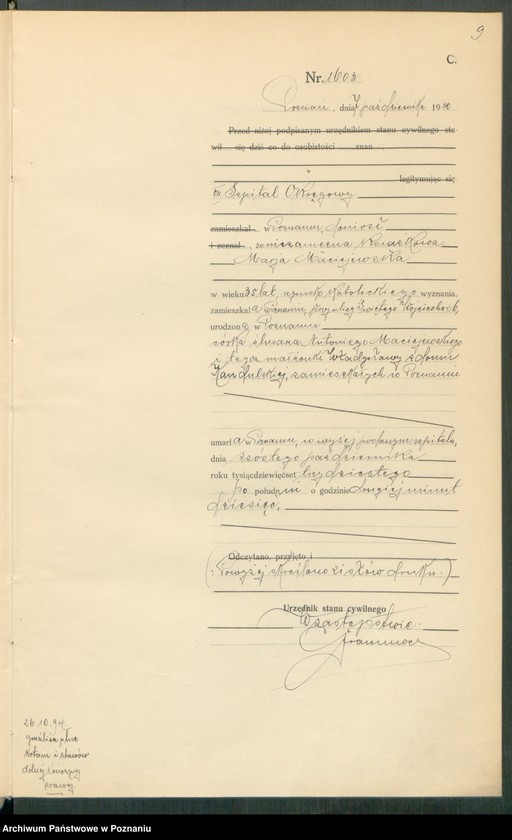 9
C.
Nr. 1603
Poznań, dnia 7 października 1930
Przed niżej podpisanym urzędnikiem stanu cywilnego sta
wił się dziś co do osobistości znan
legitymując się
Szpital Okręgowy
zamieszkał w Poznaniu, doniósł
i zeznał, że niezamężna
Marja Maciejewska
w wieku 35 lat, rzymsko katolickiego wyznania,
zamieszkała w Poznaniu, przy ulicy Świętego Wojciecha 6,
urodzona w Poznaniu
córka ślusarza Antoniego Maciejewskiego
i tegoż małżonki Władysławy z domu
zamieszkałych w Poznaniu
umarła w Poznaniu, w wyżej podanym szpitalu,
dnia szóstego października
roku tysiącdziewięćset trzydziestego
po południu o godzinie drugiej minut
dziesięć.
Odczytano, przyjęto i
(: Powyżej skreślono zisków druku :)
Urzędnik stanu cywilnego
W zastępstwie
26.10.94
i
prawy
Archiwum Państwowe w Poznaniu